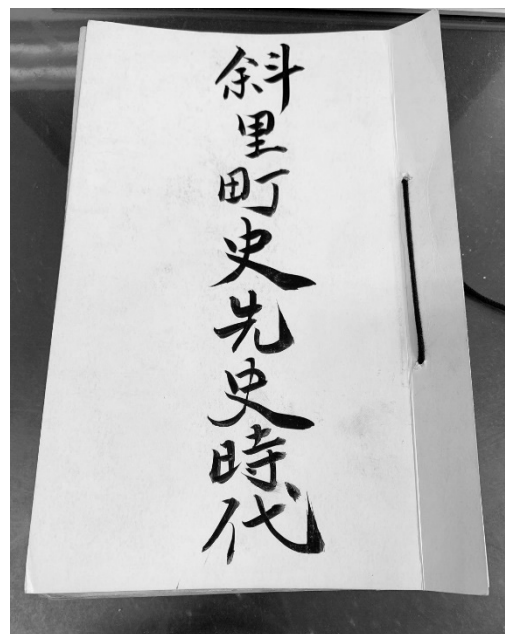 斜里町史先史時代